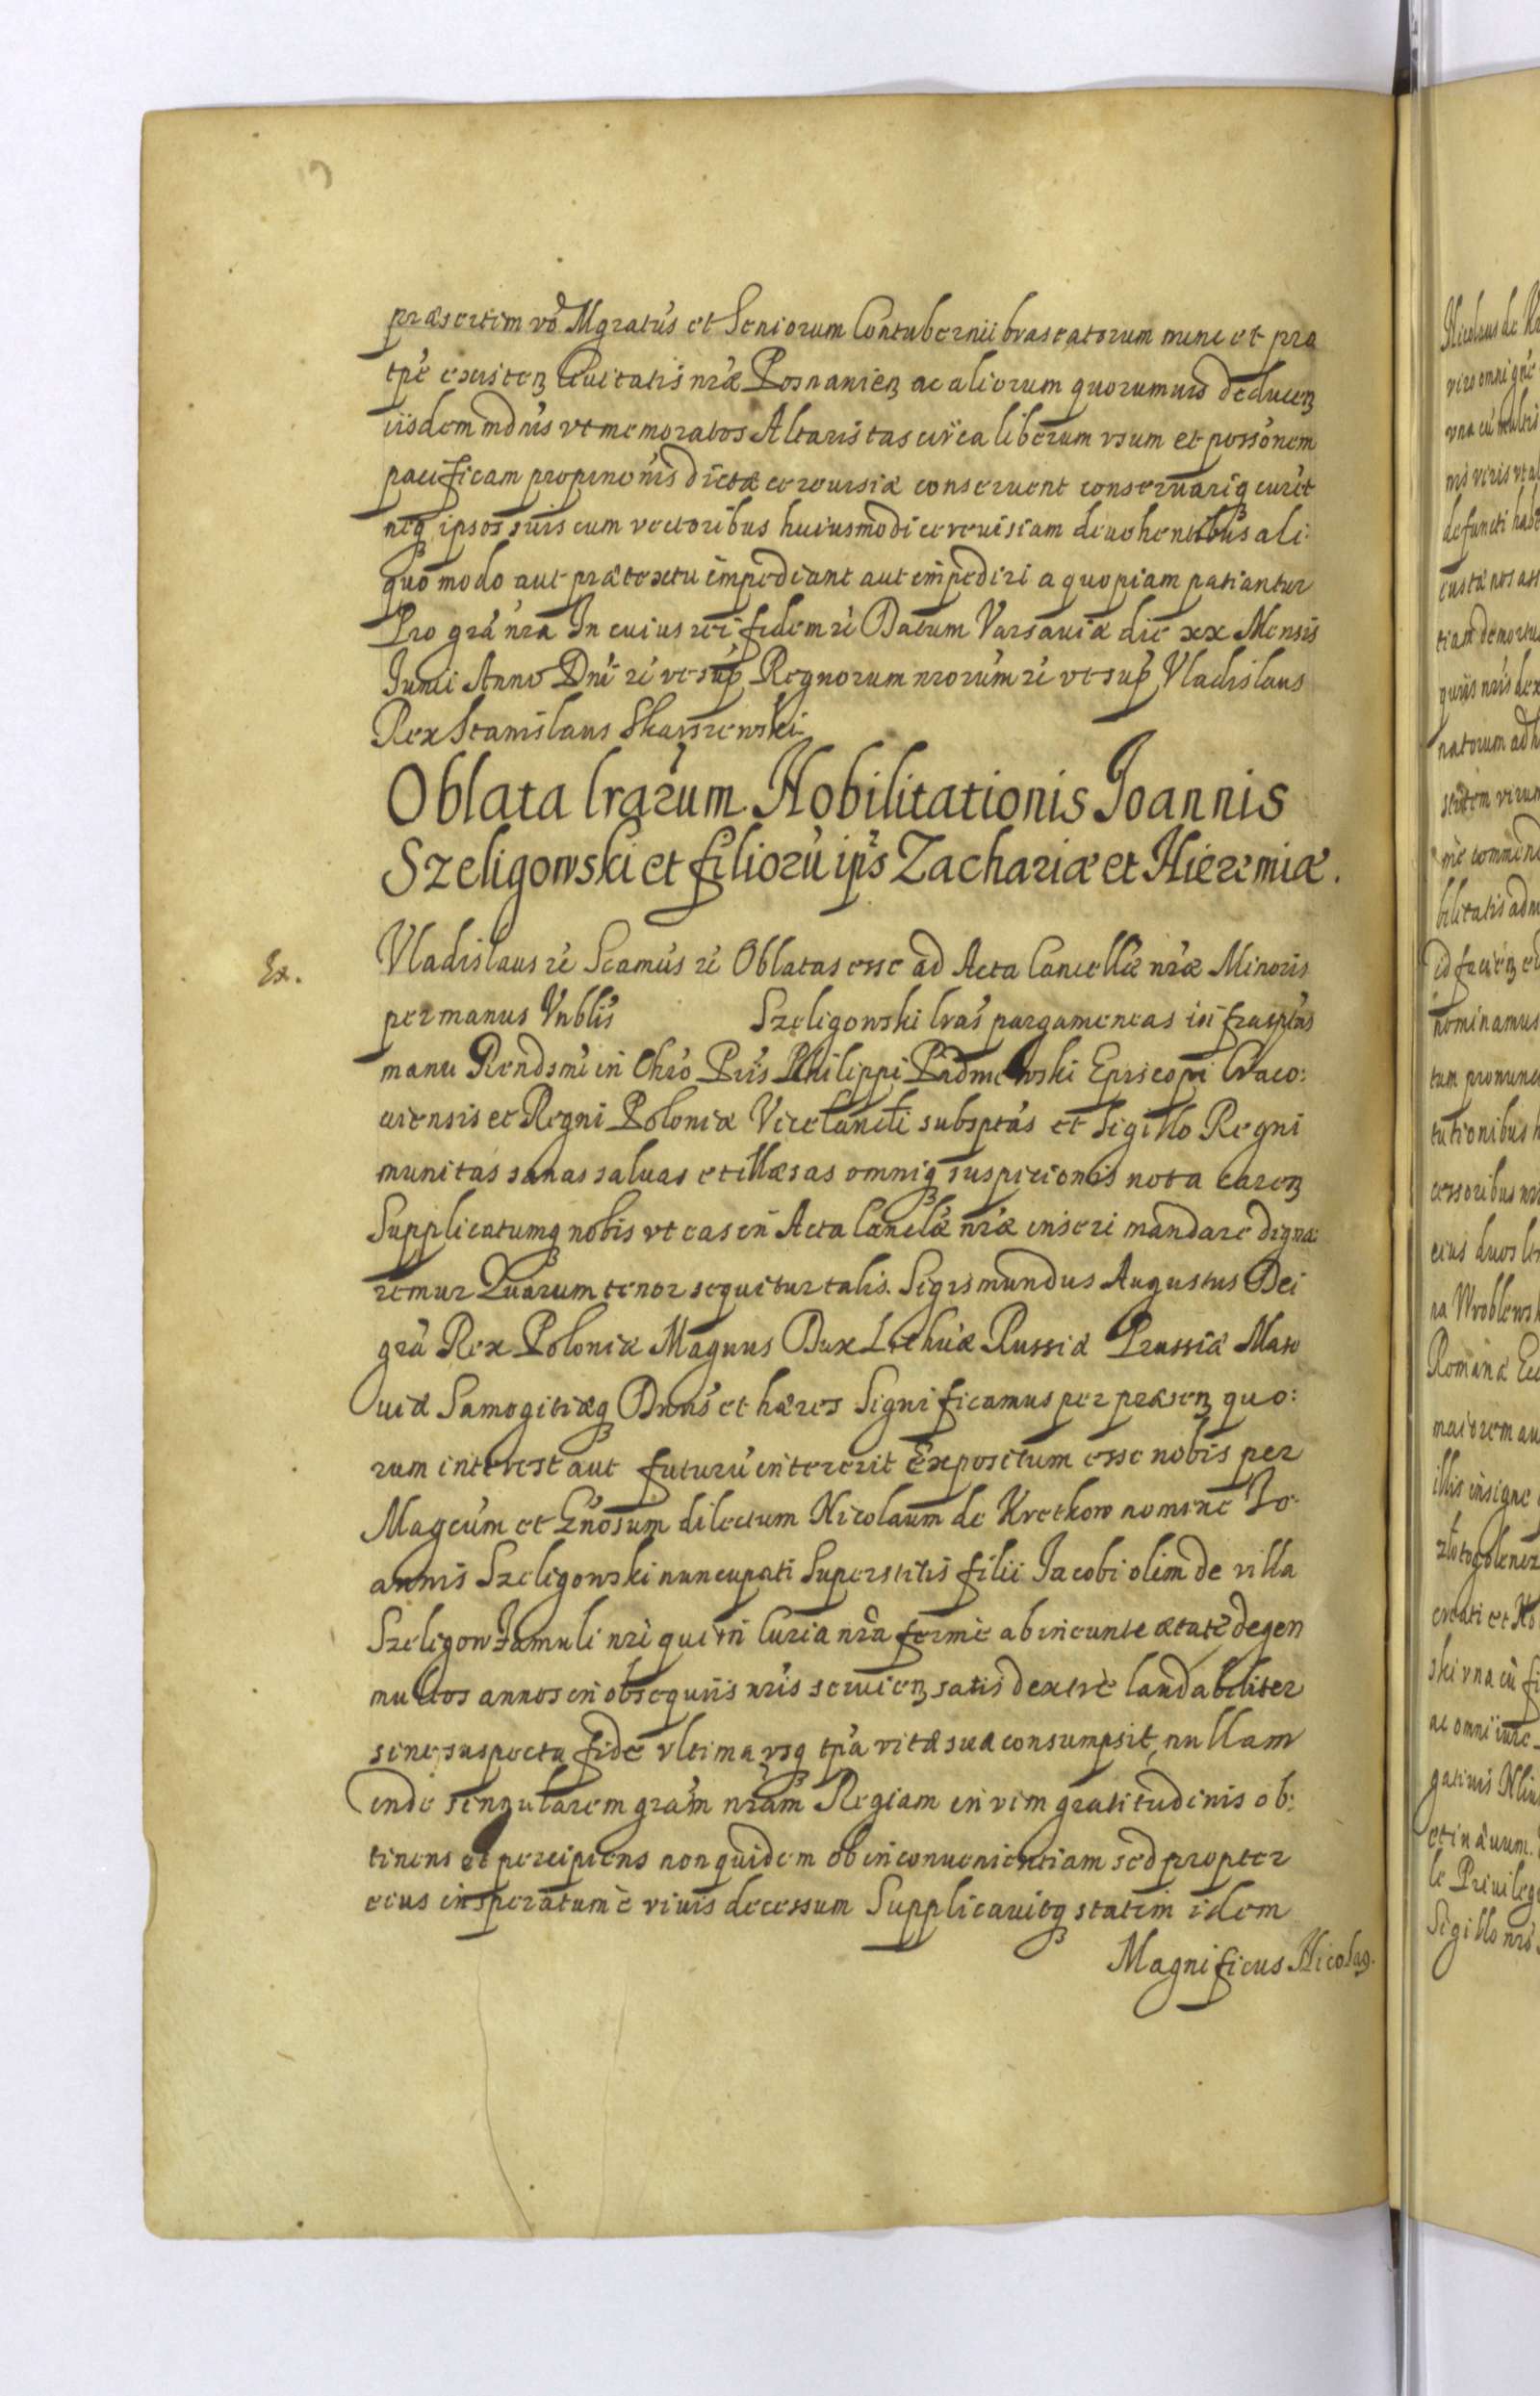 præsertim vo Mgratus et Seniorum Contubernii braseatorum nunc et pro
tpe existen Civitatis nræ Posnanien ac aliorum quorumvis deducen
iisdem mdnis vt memoratos Altaristas circa liberum vsum et possonem
pacificam propinonis dictæ cereuisiæ conseruent conseruariq curet
neq ipsos suis cum vectoribus huiusmodi cereuisiam deuehentibus ali:
quo modo aut prætextu impediant aut impediri a quopiam patiantur
Pro gra nra In cuius rei fidem rc Datum Varsauiæ die xx Mensis
Junii Anno Dni rc vt sup Regnorum nrorum rc vt sup Vladislaus
Rex Stanislaus Skarszewski
Oblata lrarum Nobilitationis Joannis
Szeligowski et filioru ips Zachariæ et Hieremiæ.
Ex.
Vladislaus rc Scamus rc Oblatas esse ad Acta Cancellæ nræ Minoris
per manus Vnblis Szeligowski lras pargameneas infrasptas
manu Rendsmi in Chro Pris Philippi Padniewski Episcopi Craco:
uiensis et Regni Poloniæ Vicecancli subsptas et Sigillo Regni
munitas sanas saluas et illæsas omniq suspicionis nota caren
Supplicatumq nobis vt eas in Acta Canclæ nræ inseri mandare digna:
remur Quarum tenor sequitur talis. Sigismundus Augustus Dei
gra Rex Poloniæ Magnus Dux Lithuæ Russiæ Prussiæ Maso
uiæ Samogitiæq Dnus et hæres Significamus per præsen quo:
rum interest aut futuru intererit Expositum esse nobis per
Magcum et Gnosum dilectum Nicolaum de Kretkow nomine Jo:
annis Szeligowski nuncupati Superstitis filii Jacobi olim de villa
Szeligow famuli nri qui in Curia nra ferme ab ineunte ætate degen
multos annos in obsequiis nris seruien satis dextre laudabiliter
sine suspecta fide vltima vsq tpa vitæ suæ consumpsit, nullam
inde singularem gram nram Regiam in vim gratitudinis ob:
tinens et percipiens non quidem ob inconuenientiam sed propter
eius insperatum e viuis decessum Supplicauitq statim idem
Magnificus Nicolaus